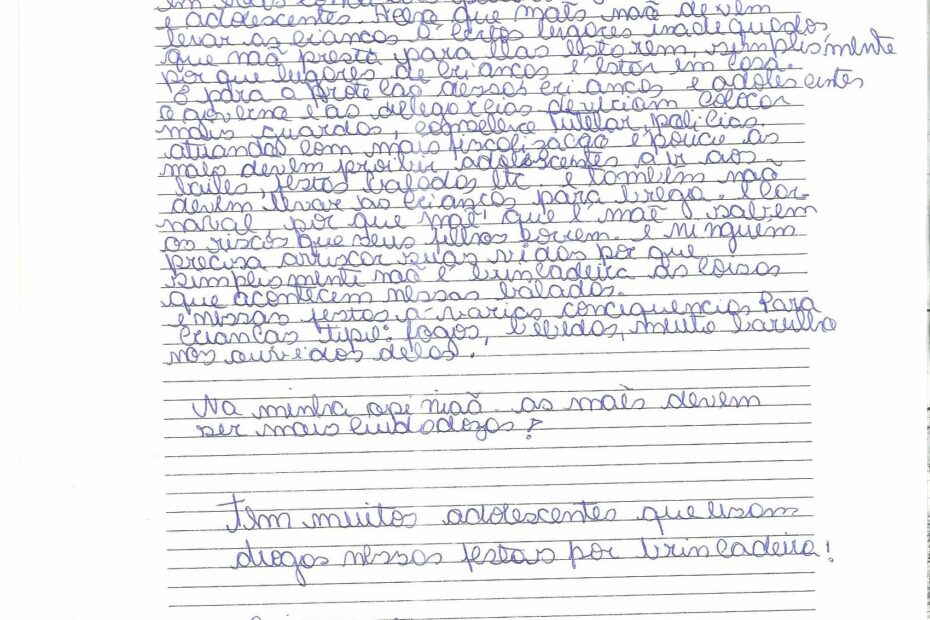 e adolescentes. Acho que mais não devem
levar as crianças a certos lugares inadequados
que não presta para elas estarem, simplismente
por que lugares de crianças é estar em casa.
E para a proteção dessas crianças e adolescentes
o governo e as delegarcias deviriam colocar
mais guardas, conselere tutelar, policias.
atuandos com mais fiscalização e poucie as
maes devem proibir adolescentes a ir aos
bailes, festas baladas etc. e também não
devem levar as crianças para brega. e car-
naval, por que mãe que é mãe sabem
os riscos que seus filhos correm. e ninguém
precisa arriscar suas vidas por que
simplismente não é brincadeira as coisas
que acontecem nessas baladas.
e nessas festas a varias conciquencias Para
crianças tipo: fogos, bebidas, muito barulho
nos ouvidos delas.
Na minha opinião as maẽs devem
ser mais cuidadozas!
Tem muitos adolescentes que usam
drogas nessas festas por brincadeira!